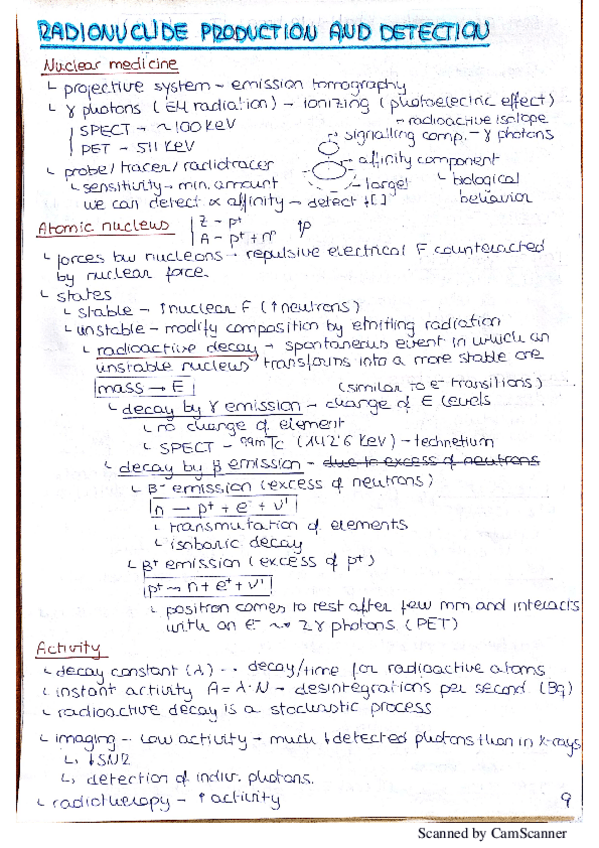 RADIONUCLIDE PRODUCTION AND DETECTION
Nuclear medicine
└ projective system - emission tomography
└ γ photons (EM radiation) - ionizing (photoelectric effect)
SPECT - ~100 KeV
- radioactive isotope
PET - 511 KeV
signalling comp. - γ photons
└ probe / tracer / radiotracer
affinity component
└ sensitivity → min. amount
target
└ biological
we can detect ∝ affinity - detect ↓[ ]
behavior
Atomic nucleus
Z - p+
A - p+ + nº
↑p
└ forces btw nucleons → repulsive electrical F counteracted
by nuclear force.
└ states
└ stable - ↑nuclear F (↑neutrons)
└ unstable - modify composition by emitting radiation
└ radioactive decay - spontaneous event in which an
unstable nucleus transforms into a more stable one
mass → E
(similar to e- transitions)
└ decay by γ emission - change of E levels
└ no change of element
└ SPECT - 99mTc (142'6 KeV) - technetium
└ decay by β emission - due to excess of neutrons
└ β- emission (excess of neutrons)
n → p+ + e- + ν'
└ transmutation of elements
└ isobaric decay
└ β+ emission (excess of p+)
p+ → n + e+ + ν'
└ positron comes to rest after few mm and interacts
with an e- ~> 2γ photons (PET)
Activity
└ decay constant (λ) - decay/time for radioactive atoms
└ instant activity A = λ·N - desintegrations per second (Bq)
└ radioactive decay is a stochastic process
└ imaging - low activity → much ↓detected photons than in X-rays
↳ ↓SNR
↳ detection of indiv. photons.
└ radiotherapy - ↑activity
9
Scanned by CamScanner